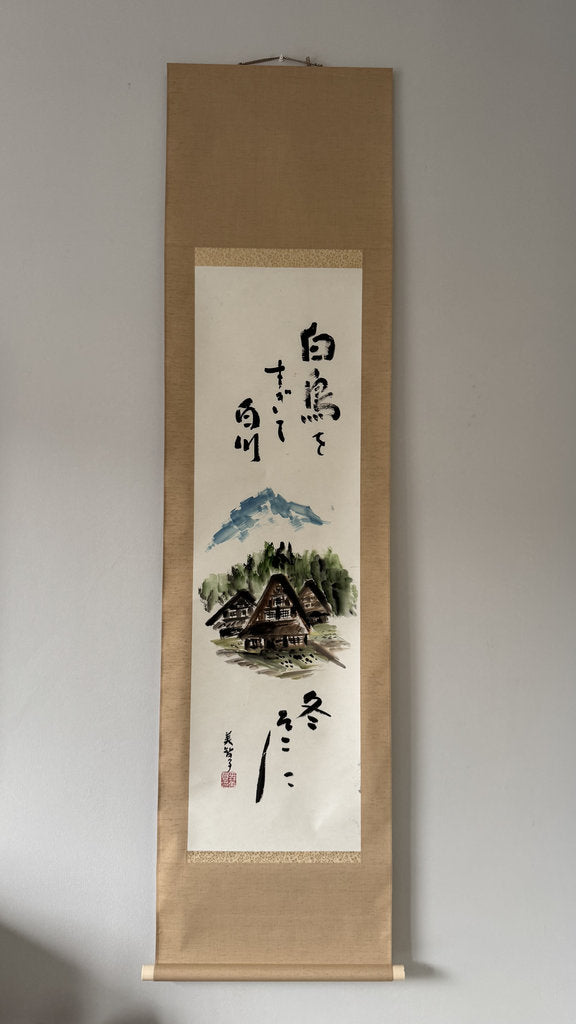 白鳥を
すぎて
白川
冬
そこに
美智子